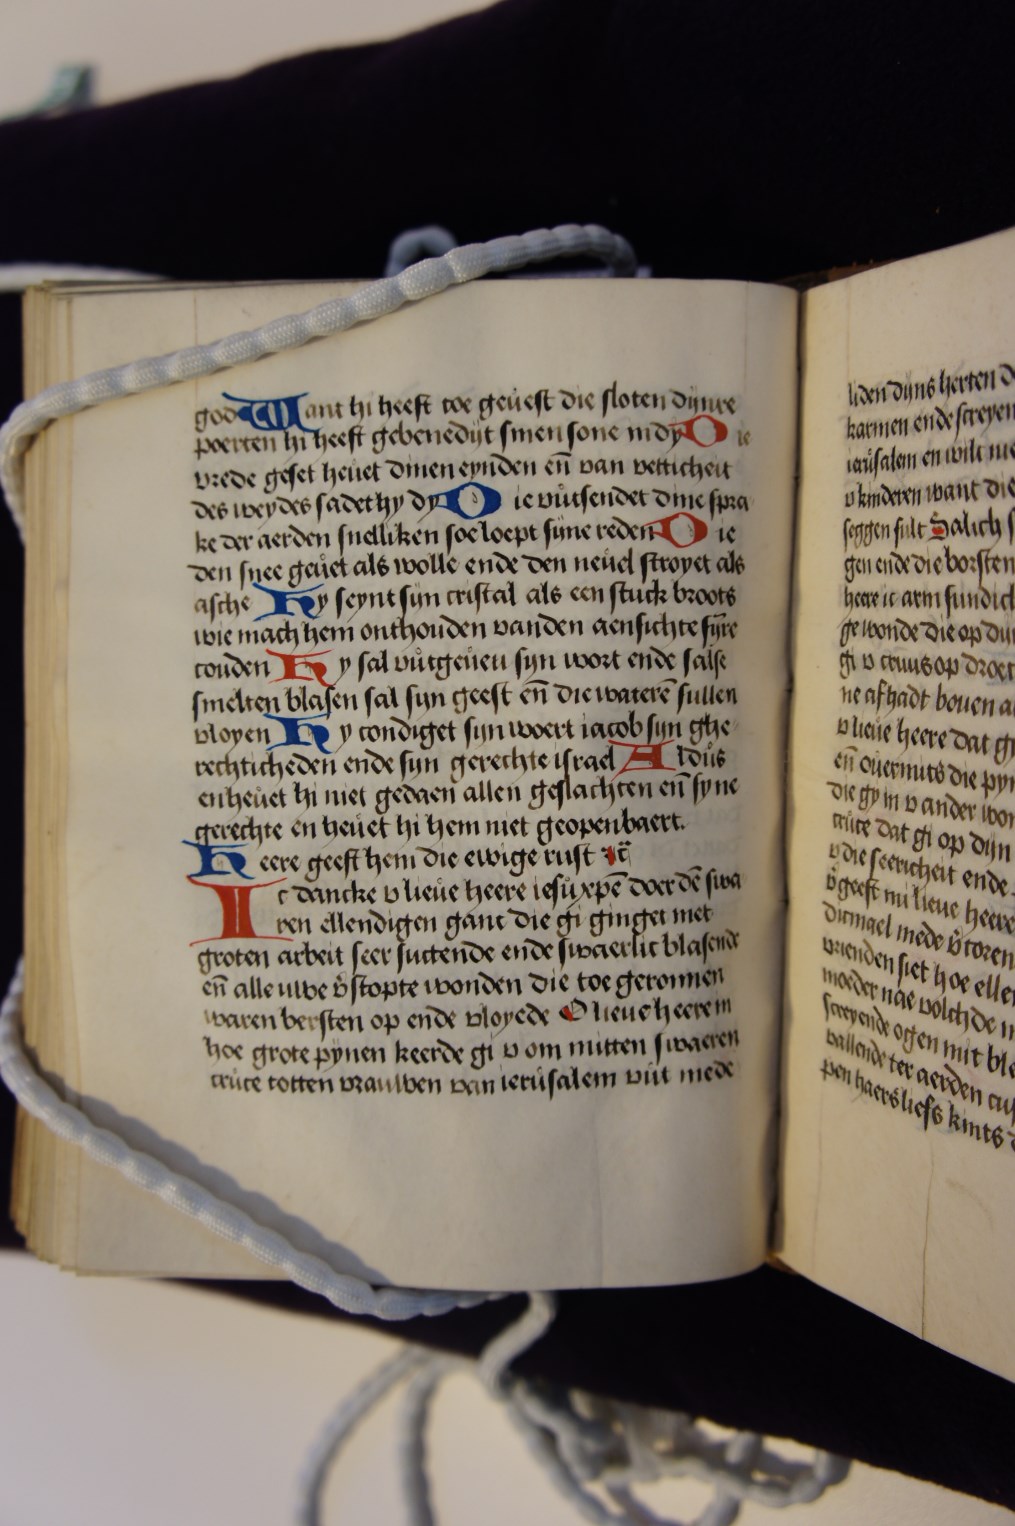 god Want hi heeft toe geuest die sloten dijnre
poerten hi heeft gebenedijt smen sone in dy Die
vrede geset heuet dinen eynden en̄ van vetticheit
des weydes sadet hy dy Die vůtsendet dine spra
ke der aerden snelliken soe loept sijne reden Die
den snee geůet als wolle ende den neuel stroyet als
asche Hy seynt sijn cristal als een stuck broots
wie mach hem onthouden vanden aensichte sijre
couden Hy sal vůtgeůen syn wort ende salse
smelten blasen sal syn geest en̄ die waterē sullen
vloyen Hy condiget sijn woert iacob sijn ghe
rechticheden ende syn gerechte israel Aldůs
en heůet hi niet gedaen allen geslachten en̄ syne
gerechte en heůet hi hem niet geopenbaert.
Heere geeft hem die ewige rust ꝛc̄
Ic dancke v lieůe heere iesů xpē doer dē swa
ren ellendigen ganc die gi ginget met
groten arbeit seer suctende ende swaerlic blasende
en̄ alle ulwe v̄stopte wonden die toe geronnen
waren bersten op ende vloyede O lieue heere in
hoe grote pynen keerde gi v om mitten swaeren
crůce totten vraulwen van ierůsalem vůt mede
liden dijns herten
karmen ende screyen
ierůsalem en wilt
v kinderen want die
seggen sult Salich
gen ende die borsten
heere ic arm sundich
ge wonde die op
gi v cruus op
ne af hadt bouen
v lieůe heere dat
en̄ oůermits die
die gy in v ander
crůce dat gi op dijn
v die seericheit ende
geeft mi lieue heere
ditmael mede toren
vrienden siet hoe
moeder nae volchde
screyende ogen mit
vallende ter aerden
pen haers liefs kints